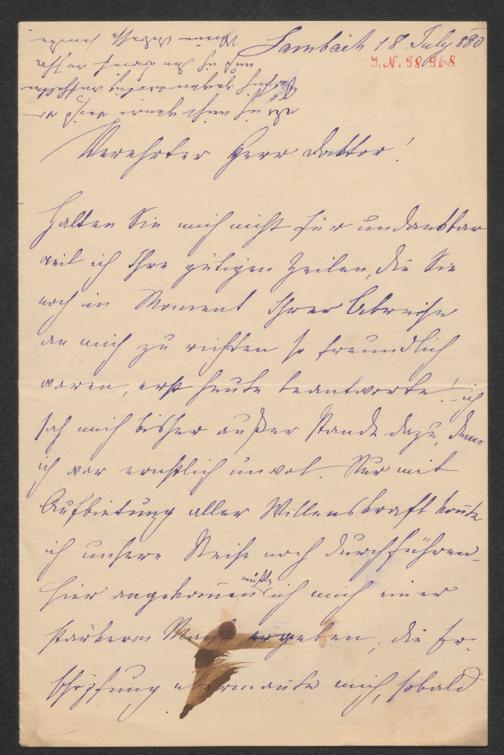 Lambach 18 July 880
I.N. 98968
Verehrter Herr Doktor!
Halten Sie mich nicht für undankbar
weil ich Ihre gütigen Zeilen, die Sie
noch im Moment Ihrer Abreise
an mich zu richten so freundlich
waren, erst heute beantworte! ich
sah mich bisher außer Stande dazu, denn
ich war ernstlich unwol. Nur mit
Aufbietung aller Willenskraft konnte
ich unsere Reise noch durchführen.
hier angekommen mußte ich mich einer
stärkern Macht ergeben, die Er-
schöpfung übermannte mich, sobald